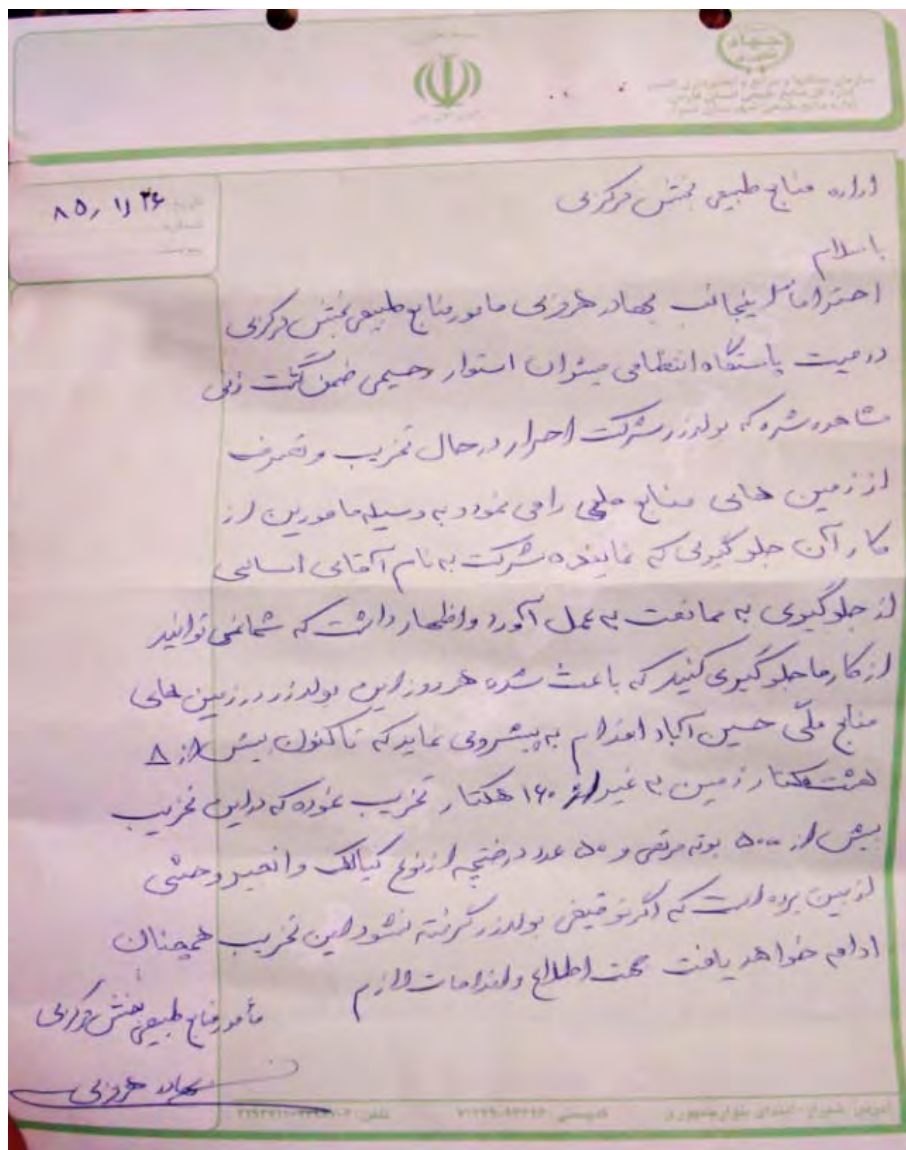 جهاد
سازمان جنگلها و مراتع و آبخیزداری کشور
اداره کل منابع طبیعی استان فارس
اداره منابع طبیعی شهرستان شیراز
تاریخ ۸۵/۱/۲۶
شماره
پیوست
اداره منابع طبیعی بخش مرکزی
با سلام
احتراماً اینجانب بهادر هروزی مامور منابع طبیعی بخش مرکزی
در معیت پاسگاه انتظامی استوار رحیمی ضمن گشت زنی
مشاهده شده که بولدزر شرکت احرار در حال تخریب و تصرف
از زمین های منابع ملی را می نمود و به وسیله مامورین از
کار آن جلوگیری که نماینده شرکت به نام آقای
از جلوگیری به ممانعت به عمل آورد و اظهار داشت که شما نمی توانید
از کار ما جلوگیری کنید که باعث شده هر روز این بولدزر در زمین های
منابع ملّی حسین آباد اقدام به پیشروی نماید که تاکنون بیش از ۸
هشت هکتار زمین به غیر از ۱۶۰ هکتار تخریب نموده که در این تخریب
بیش از ۵۰۰ بوته مرتعی و ۵۰ عدد درختچه از نوع کیالک و انجیر وحشی
از بین برده است که اگر توقیفی بولدزر گرفته نشود این تخریب همچنان
ادامه خواهد یافت جهت اطلاع و اقدامات لازم
مأمور منابع طبیعی بخش مرکزی
بهادر هروزی
آدرس: شیراز - ابتدای بلوار جمهوری کدپستی تلفن